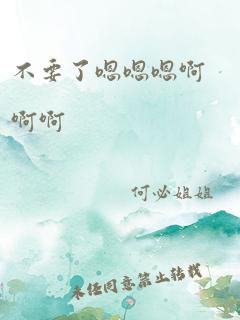 不要了嗯嗯嗯啊
啊啊
何必姐姐
未经同意禁止转载